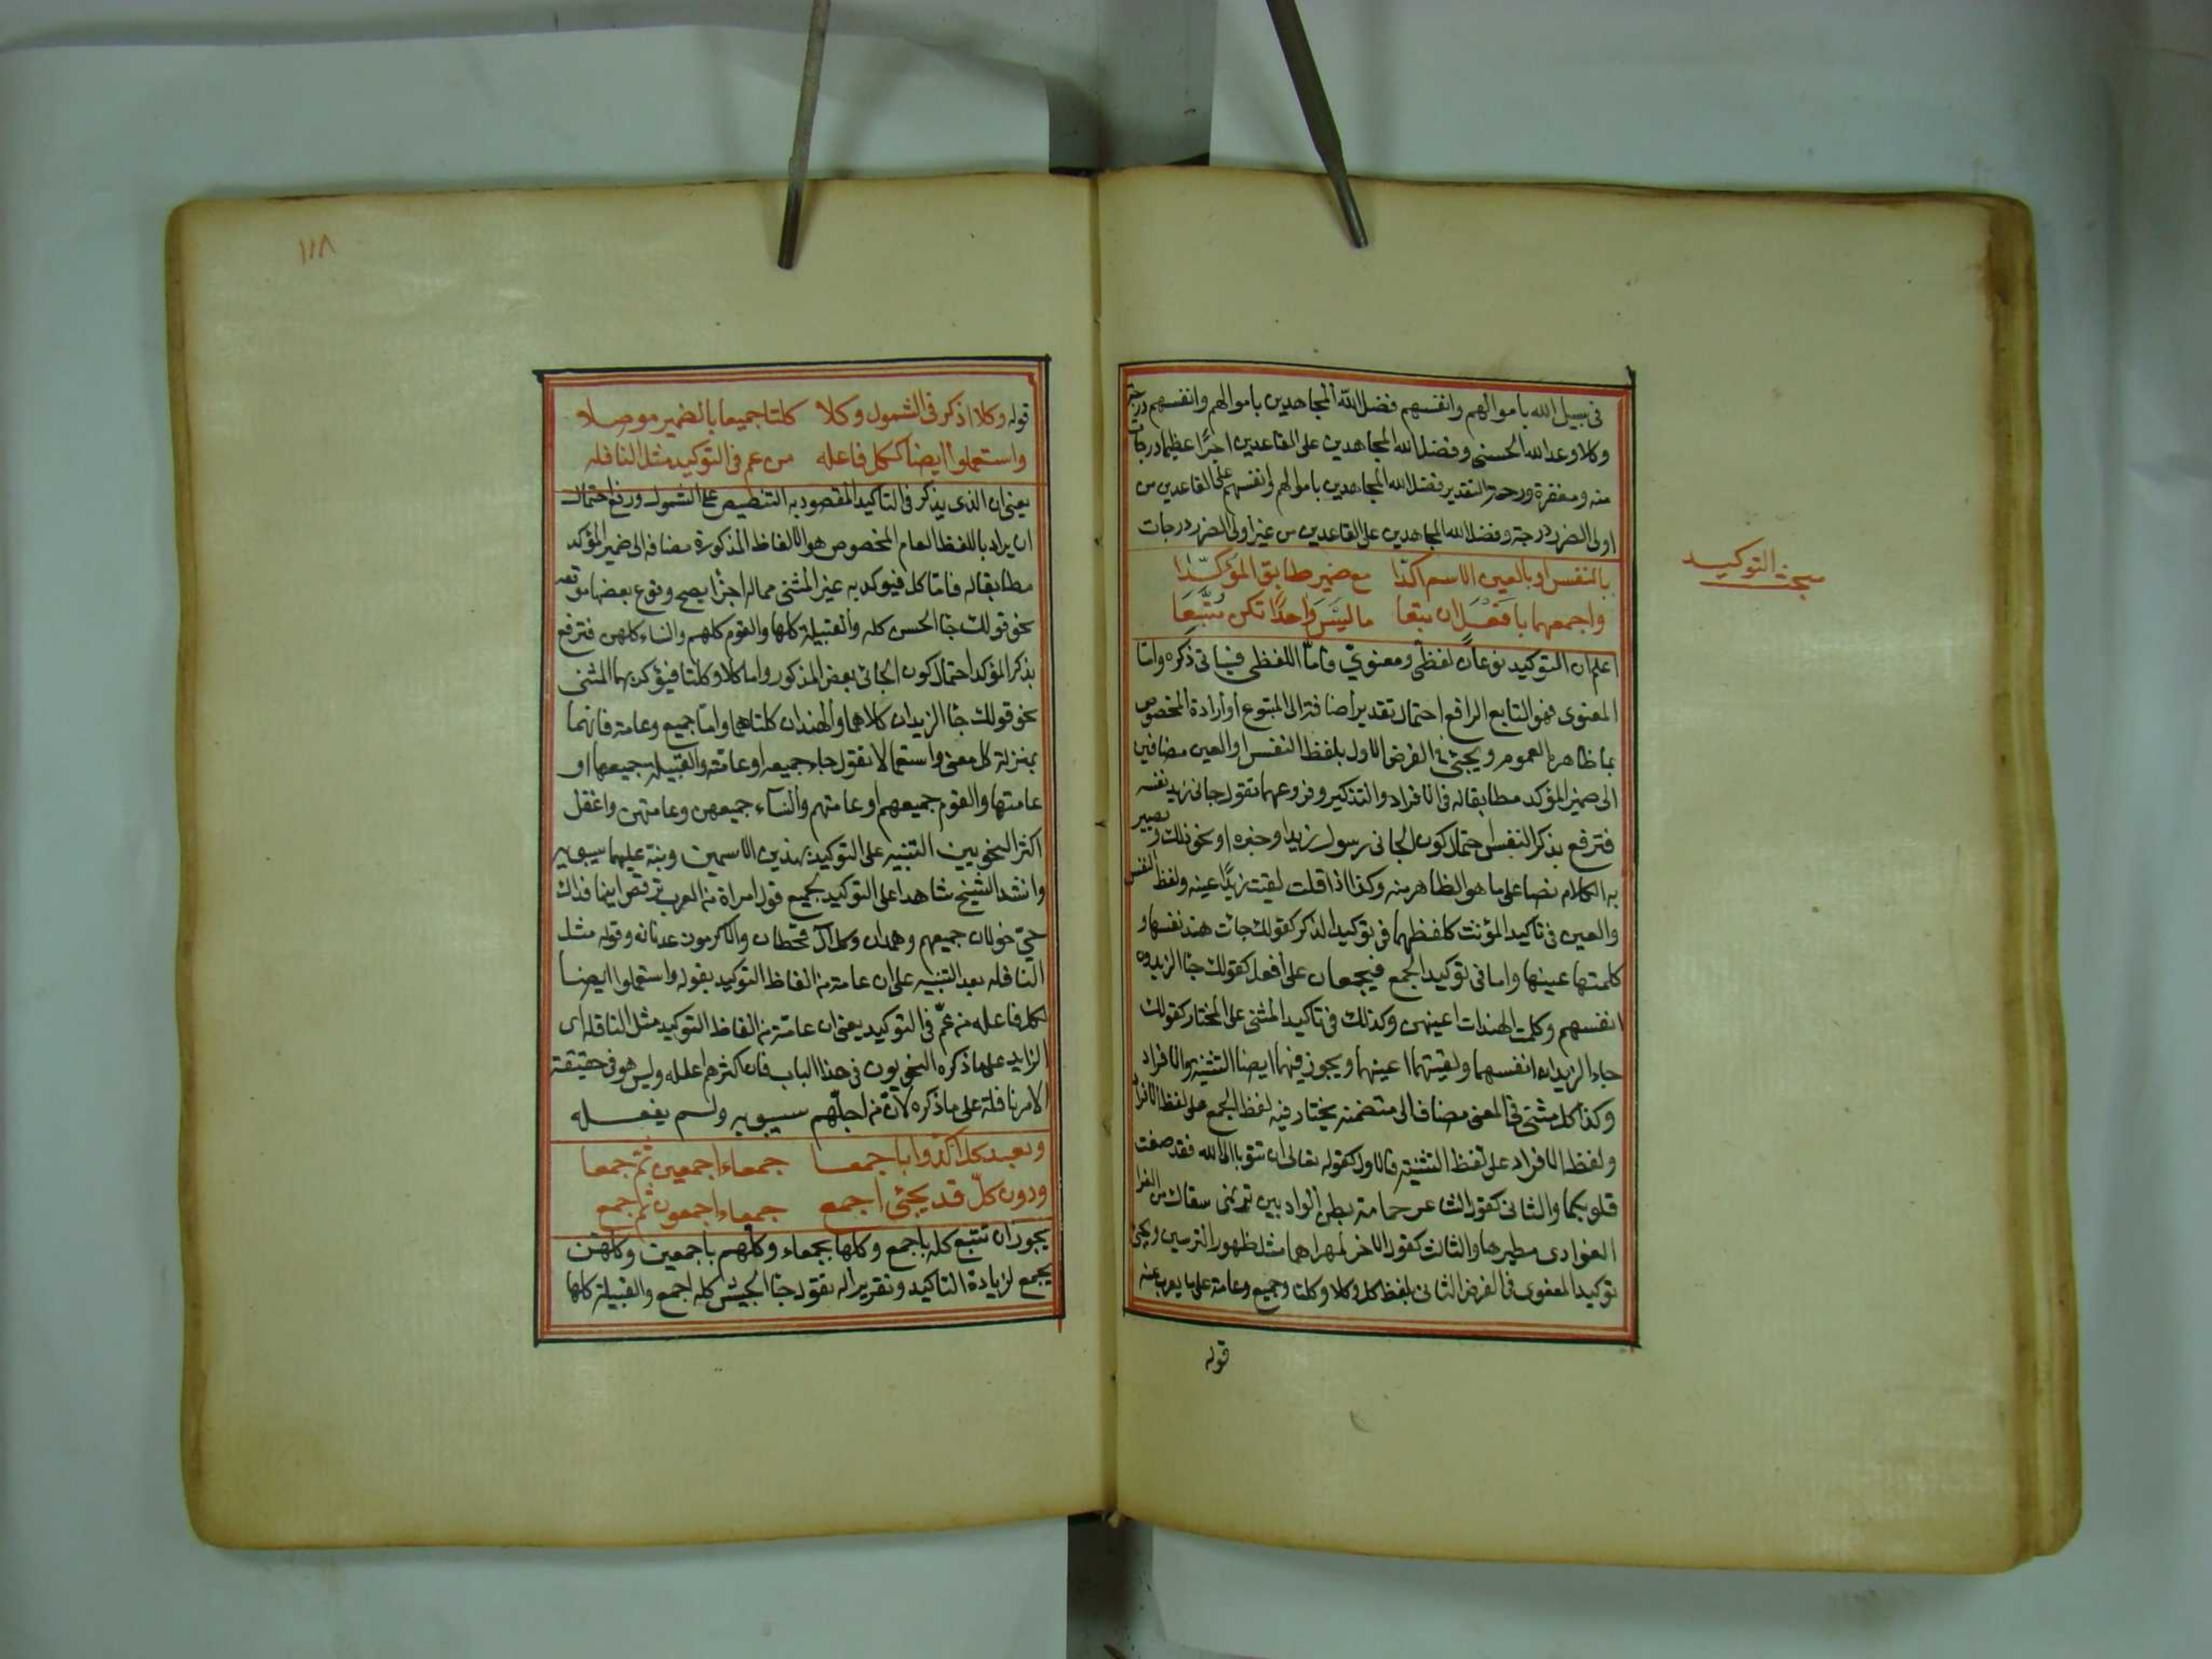 في سبيل الله باموالهم وانفسهم فضل الله المجاهدين باموالهم وانفسهم درجة
وكلا وعد الله الحسنى وفضل الله المجاهدين على القاعدين اجرًا عظيما درجات
منه ومغفرة ورحمة التقدير فضل الله المجاهدين باموالهم وانفسهم على القاعدين من
اولى الضرر درجة وفضل الله المجاهدين على القاعدين من غير اولى الضرر درجات
مبحث التوكيد
بالنفس او بالعين الاسم اكدا مع ضمير طابق المؤكدا
واجمعهما بافعل ان تبعا ما ليس واحدًا تكن متبعا
اعلم ان التوكيد نوعان لفظى ومعنوى فاما اللفظى فياتى ذكره واما
المعنوى فهو التابع الرافع احتمال تقدير اضافة الى المتبوع او ارادة الخصوص
بما ظاهره العموم ويجئ في الغرض الاول بلفظ النفس او العين مضافين
الى ضمير المؤكد مطابقا له فى الافراد والتذكير وفروعهما تقول جانى زيد نفسه
فترفع بذكر النفس احتمال كون الجانى رسول زيد او خبره او نحو ذلك ويصير
به الكلام نصا على ما هو الظاهر منه وكذا اذا قلت لقيت زيدًا عينه ولفظ النفس
والعين فى تاكيد المؤنث كلفظهما فى توكيد المذكر كقولك جات هند نفسها و
كلمتها عينها واما فى توكيد الجمع فيجمعان على افعل كقولك جا الزيدون
انفسهم وكلمت الهندات اعينهن وكذلك فى تاكيد المثنى على المختار كقولك
جاء الزيدان انفسهما ولقيتهما اعينهما ويجوز فيهما ايضا التثنية والافراد
وكذا كل مثنى فى المعنى مضاف الى متضمنه يختار فيه لفظ الجمع على لفظ الافراد
ولفظ الافراد على لفظ التثنية فالاول كقوله تعالى ان تتوبا الى الله فقد صغت
قلوبكما والثانى كقول الشاعر حمامة بطن الواديين ترنمى سقاك من الغر
الغوادى مطيرها والثالث كقول الاخر لمهراهما مثل ظهور الترسين ويجئ
توكيد المعنوى فى الغرض الثانى بلفظ كل وكلا وكلتا وجميع وعامة على ما يعرب عنه
قوله
١١٨
قوله وكلا اذكر فى الشمول وكلا كلتا جميعا بالضمير موصلا
واستعملوا ايضا ككل فاعله من عم فى التوكيد مثل النافله
يعنى ان الذى يذكر فى التاكيد المقصود به التنصيص على الشمول ورفع احتمال
ان يراد باللفظ العام المخصوص هو الالفاظ المذكورة مضافه الى ضمير المؤكد
مطابقا له فاما كل فيوكد به غير المثنى مما له اجزا يصح وقوع بعضها موقعه
نحو قولك جا الحسن كله والقبيلة كلها والقوم كلهم والنساء كلهن فترفع
بذكر المؤكد احتمال كون الجائى بعض المذكور واما كلا وكلتا فيؤكد بهما المثنى
نحو قولك جا الزيدان كلاهما والهندان كلتاهما واما جميع وعامة فانهما
بمنزلة كل معنى واستعمالا تقول جاء جميعه او عامته والقبيلة جميعها او
عامتها والقوم جميعهم او عامتهم والنساء جميعهن وعامتهن واغفل
اكثر النحويين التنبيه على التوكيد بهذين الاسمين ونبه عليهما سيبويه
وانشد الشيخ شاهدا على التوكيد بجميع قول امراة من العرب ترقص ابنها فداك
حيّ خولان جميعهم وهمدان وكل ال قحطان والاكرمون عدنانه وقوله مثل
النافله بعد التنبيه على ان عامة من الفاظ التوكيد بقوله واستعملوا ايضا
ككل فاعله من عمّ فى التوكيد يعنى ان عامة من الفاظ التوكيد مثل النافله اى
الزايد على ما ذكره النحويون فى هذا الباب فان اكثرهم اغفله وليس هو فى حقيقة
الامر نافلة على ما ذكره لانّ من اجلّهم سيبويه ولم يغفله
وبعد كل اكدوا باجمعا جمعاء اجمعين ثم جمعا
ودون كلّ قد يجئ اجمع جمعاء اجمعون ثم جمع
يجوز ان تتبع كله باجمع وكلها بجمعاء وكلهم باجمعين وكلهن
بجمع لزيادة التاكيد وتقريره له تقول جا الجيش كله اجمع والقبيلة كلها